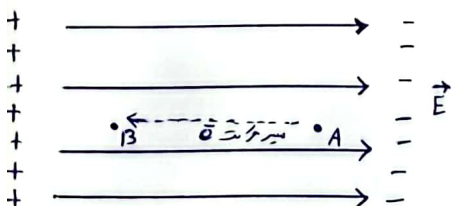 + −
+ −
+ − E⃗
+ −
B مسیر حرکت ē A
+ −
+ −
+ −